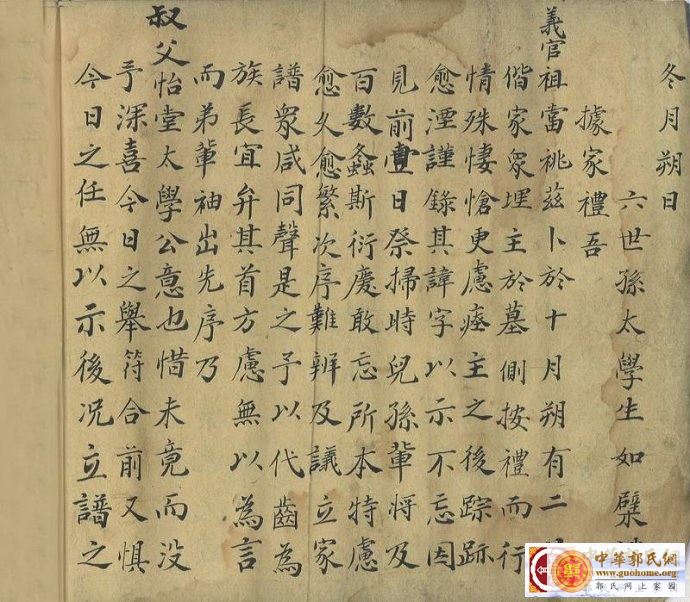 冬月朔日
六世孫太學生如檗
據家禮吾
義官祖當祧茲卜於十月朔有二
偕家衆埋主於墓側按禮而行
情殊悽愴更慮瘞主之後踪跡
愈湮謹錄其諱字以示不忘因
見前壹日祭掃時兒孫輩將及
百數螽斯衍慶敢忘所本特慮
愈久愈繁次序難辨及議立家
譜衆咸同聲是之予以代齒為
族長宜弁其首方慮無以為言
而弟輩袖出先序乃
叔父怡堂太學公意也惜未竟而没
予深喜今日之舉符合前又惧
今日之任無以示後况立譜之
中華郭氏網
www.guohome.org
郭氏网上家園